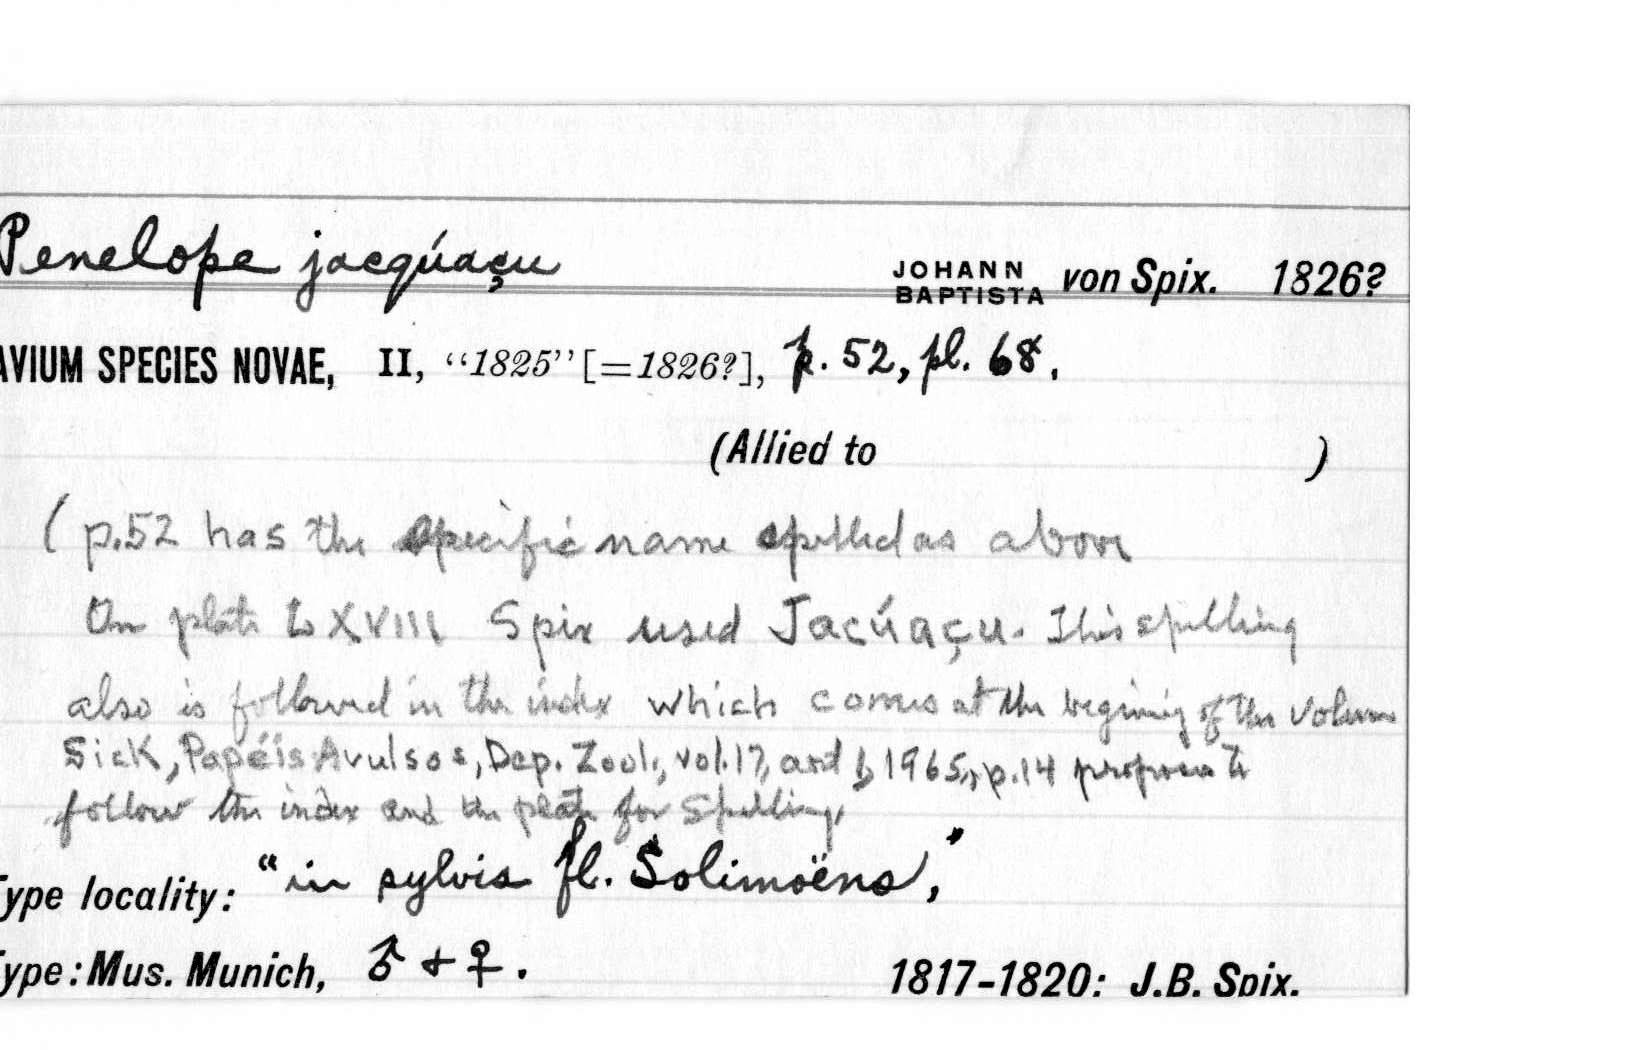 Penelope jacqúaçu JOHANN BAPTISTA von Spix. 1826?
AVIUM SPECIES NOVAE, II, “1825” [=1826?], p. 52, pl. 68.
(Allied to )
(p.52 has the specific name spelled as above
On plate LXVIII Spix used Jacúaçu. This spelling
also is followed in the index which comes at the begining of the volume
Sick, Papéis Avulsos, Dep. Zool., vol. 17, art 1, 1965, p. 14 proposes to
follow the index and the plate for spelling.
Type locality: “in sylvis fl. Solimoëns,”
Type: Mus. Munich, ♂ + ♀. 1817-1820: J.B. Spix.